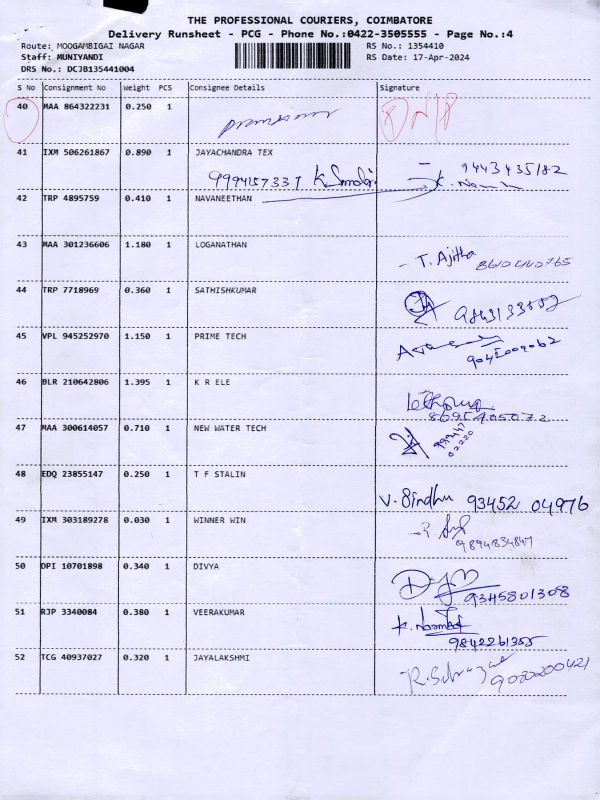 THE PROFESSIONAL COURIERS, COIMBATORE
Delivery Runsheet - PCG - Phone No.:0422-3505555 - Page No.:4
Route: MOOGAMBIGAI NAGAR RS No.: 1354410
Staff: MUNIYANDI RS Date: 17-Apr-2024
DRS No.: DCJB135441004
S No Consignment No Weight PCS Consignee Details Signature
40 MAA 864322231 0.250 1
41 IXM 506261867 0.890 1 JAYACHANDRA TEX
9443435182
42 TRP 4895759 0.410 1 NAVANEETHAN
43 MAA 301236606 1.180 1 LOGANATHAN
- T. Ajitha
44 TRP 7718969 0.360 1 SATHISHKUMAR
45 VPL 945252970 1.150 1 PRIME TECH
46 BLR 210642806 1.395 1 K R ELE
8695405072
47 MAA 300614057 0.710 1 NEW WATER TECH
48 EDQ 23855147 0.250 1 T F STALIN
V. Sindhu 93452 04976
49 IXM 303189278 0.030 1 WINNER WIN
9894834847
50 DPI 10701898 0.340 1 DIVYA
9345801308
51 RJP 3340084 0.380 1 VEERAKUMAR
9842261355
52 TCG 40937027 0.320 1 JAYALAKSHMI